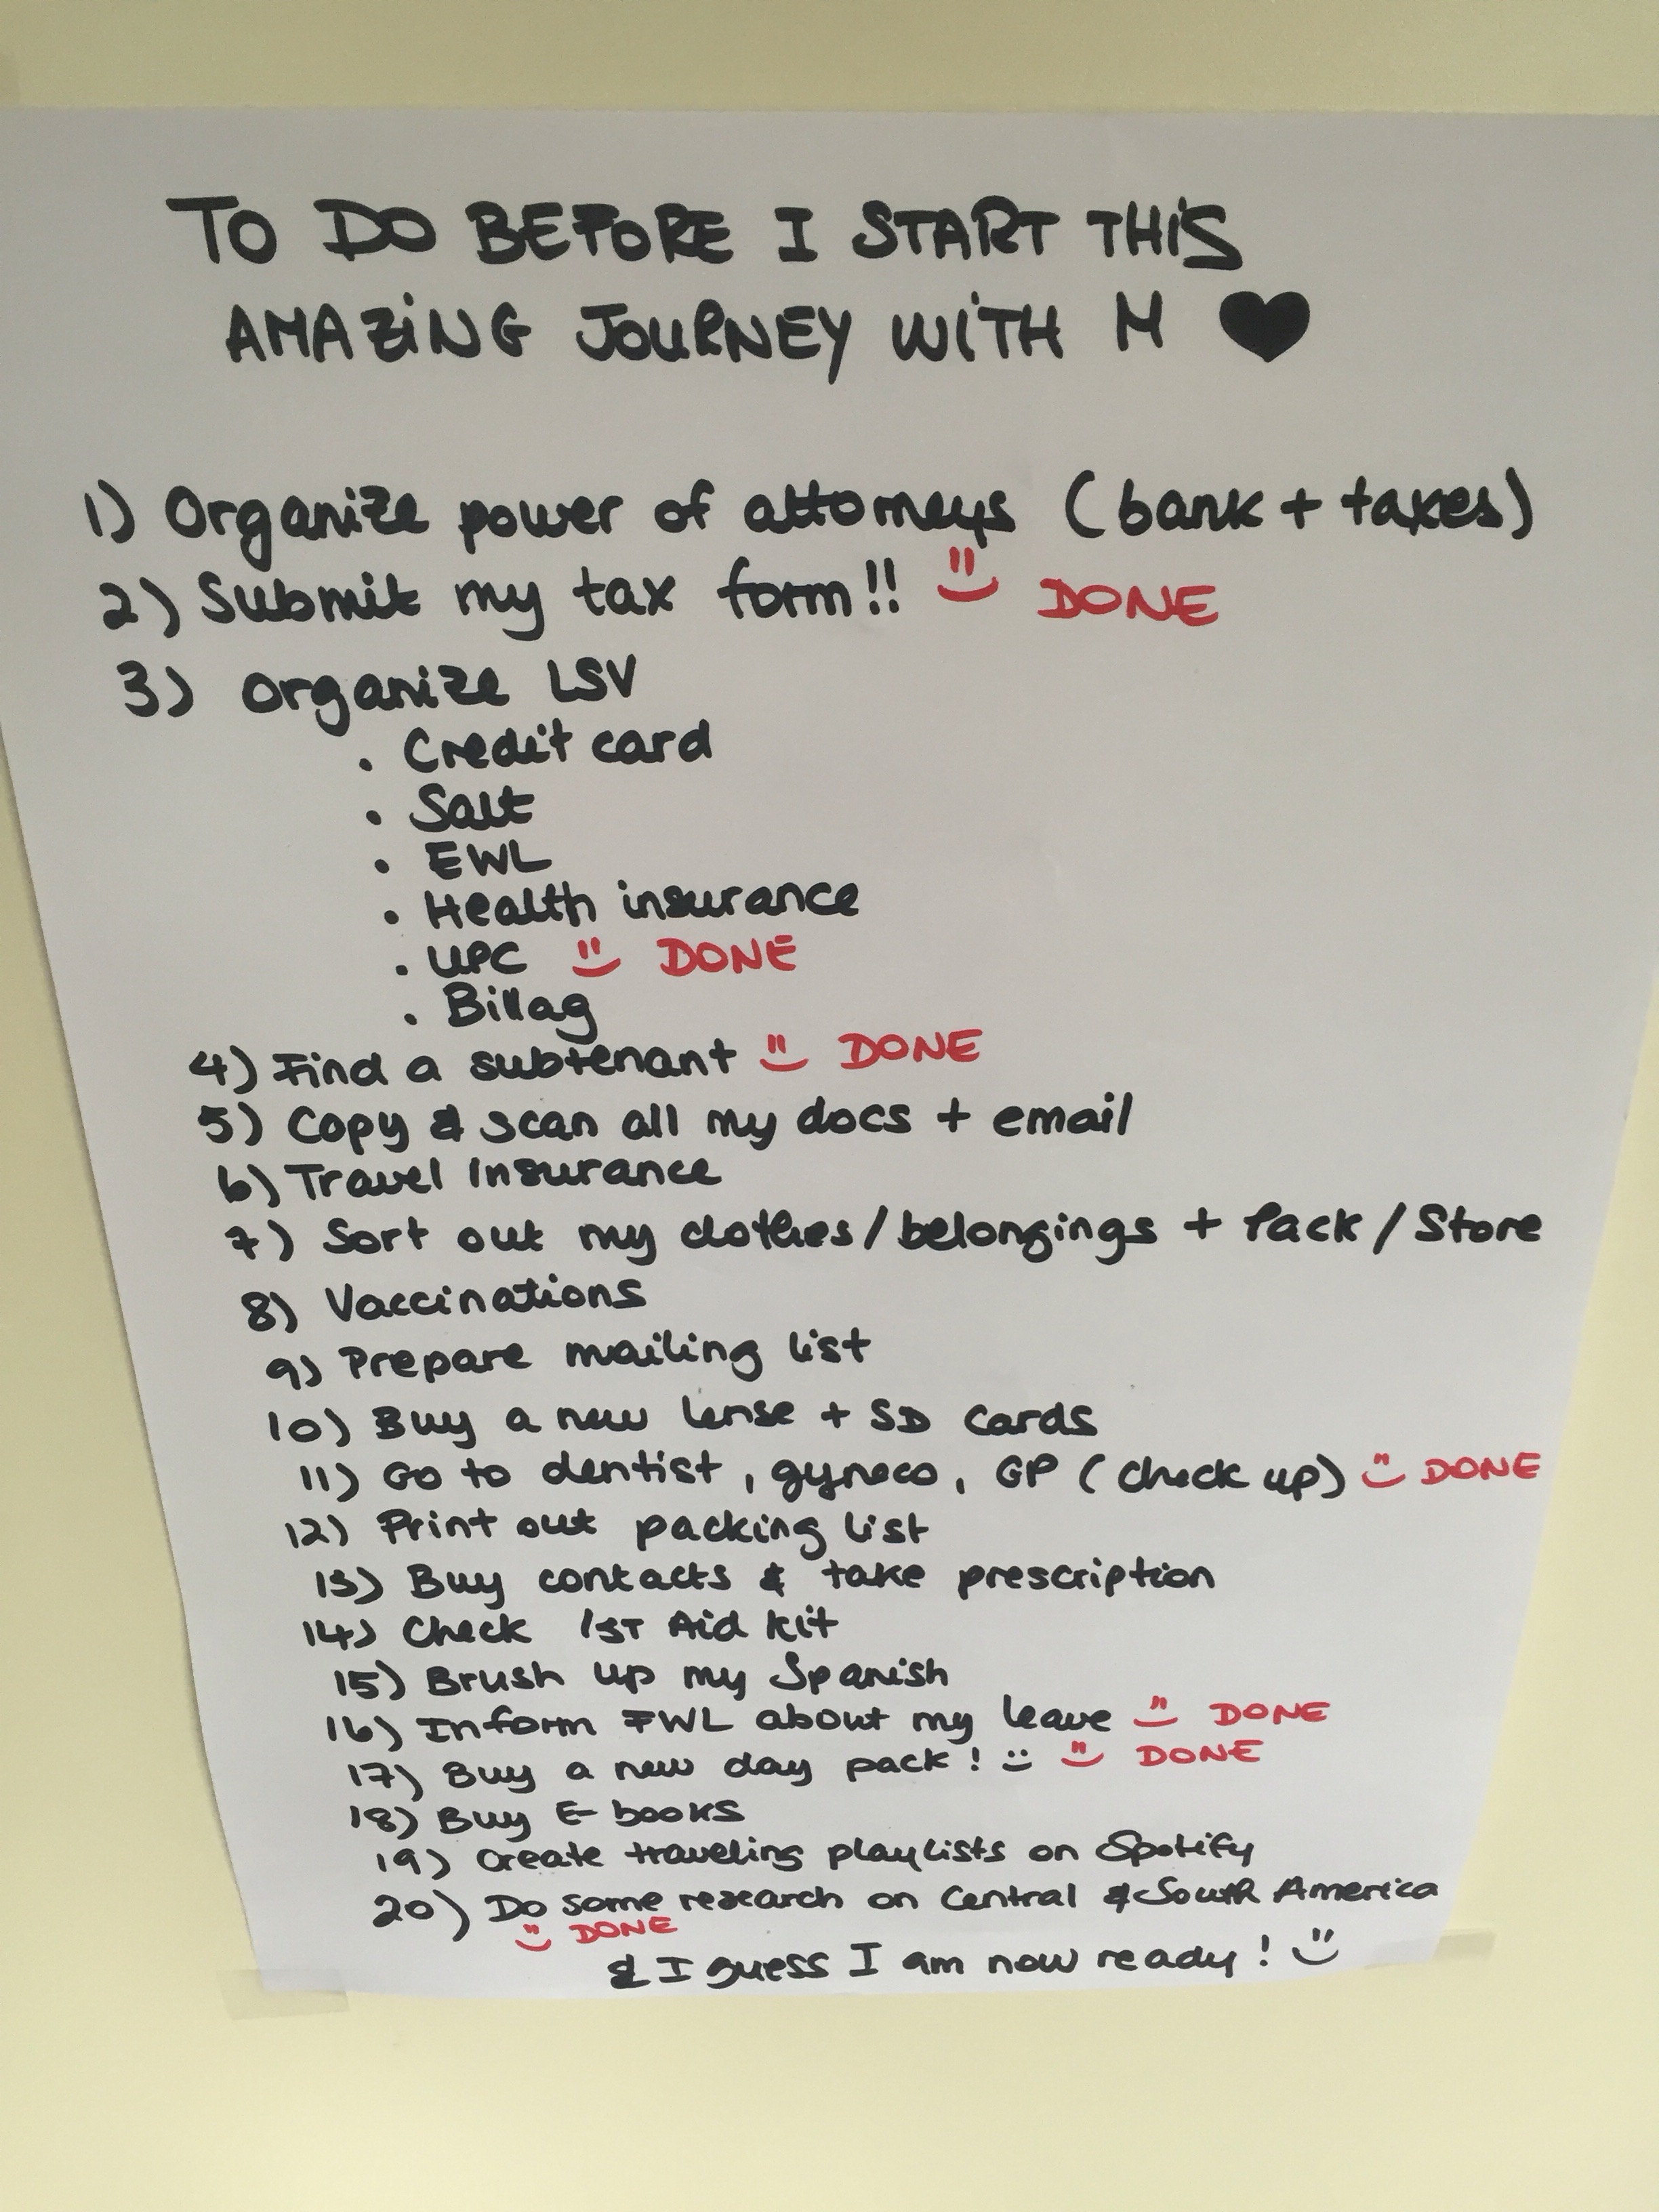 TO DO BEFORE I START THIS
AMAZING JOURNEY WITH M ♥
1) Organize power of attorneys (bank + taxes)
2) Submit my tax form!! DONE
3) Organize LSV
. Credit card
. Salt
. EWL
. Health insurance
. UPC DONE
. Billag
4) Find a subtenant DONE
5) Copy & scan all my docs + email
6) Travel Insurance
7) Sort out my clothes/belongings + Pack/Store
8) Vaccinations
9) Prepare mailing list
10) Buy a new lense + SD cards
11) Go to dentist, gyneco, GP (check up) DONE
12) Print out packing list
13) Buy contacts & take prescription
14) Check 1ST Aid Kit
15) Brush up my Spanish
16) Inform FWL about my leave DONE
17) Buy a new day pack! :) DONE
18) Buy E-books
19) Create traveling playlists on Spotify
20) Do some research on Central & South America
DONE
& I guess I am now ready! :)